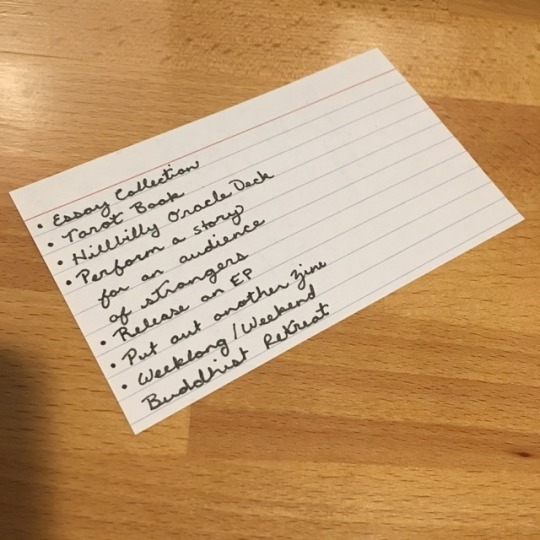 • Essay Collection
• Tarot Book
• Hillbilly Oracle Deck
• Perform a story
for an audience
of strangers
• Release an EP
• Put out another zine
• Weeklong/Weekend
Buddhist Retreat